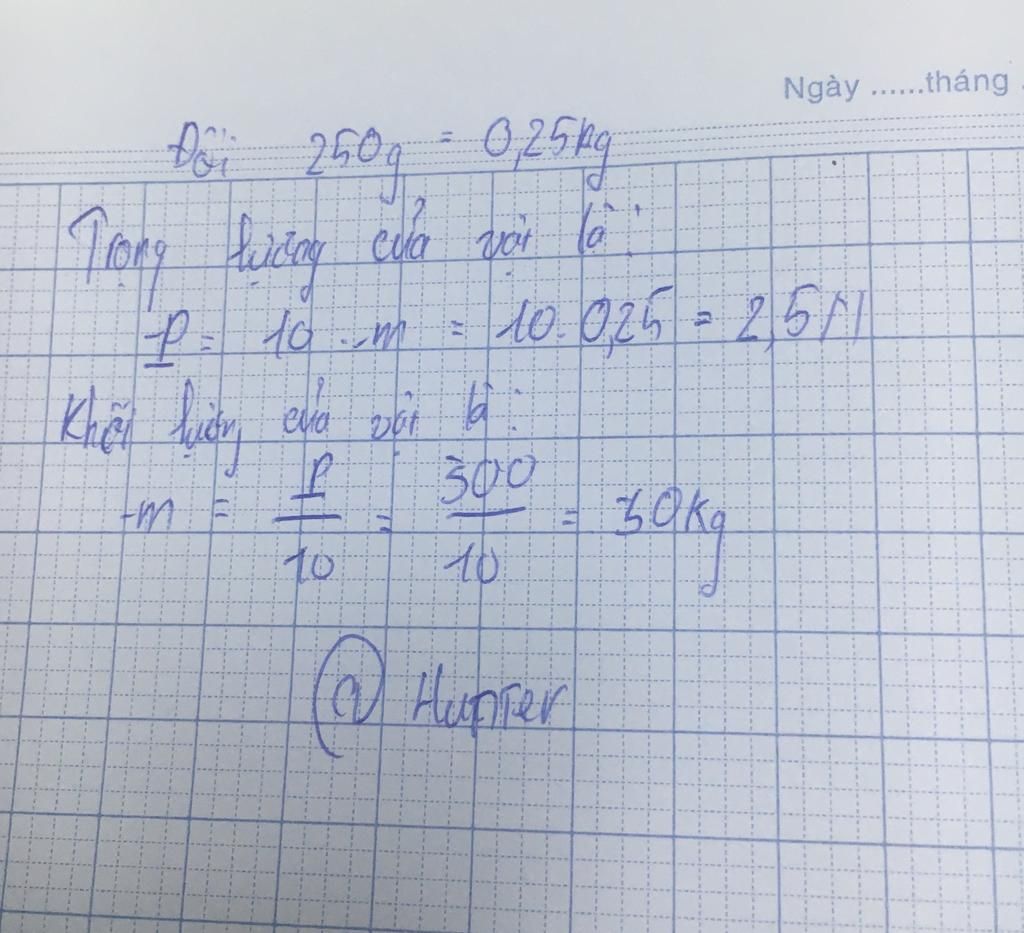 Ngày ......tháng .
Đổi 250g = 0,25kg
Trọng lượng của vật là:
P = 10 . m = 10.0,25 = 2,5N
Khối lượng của vật là:
m = P/10 = 300/10 = 30Kg
@ Hunter